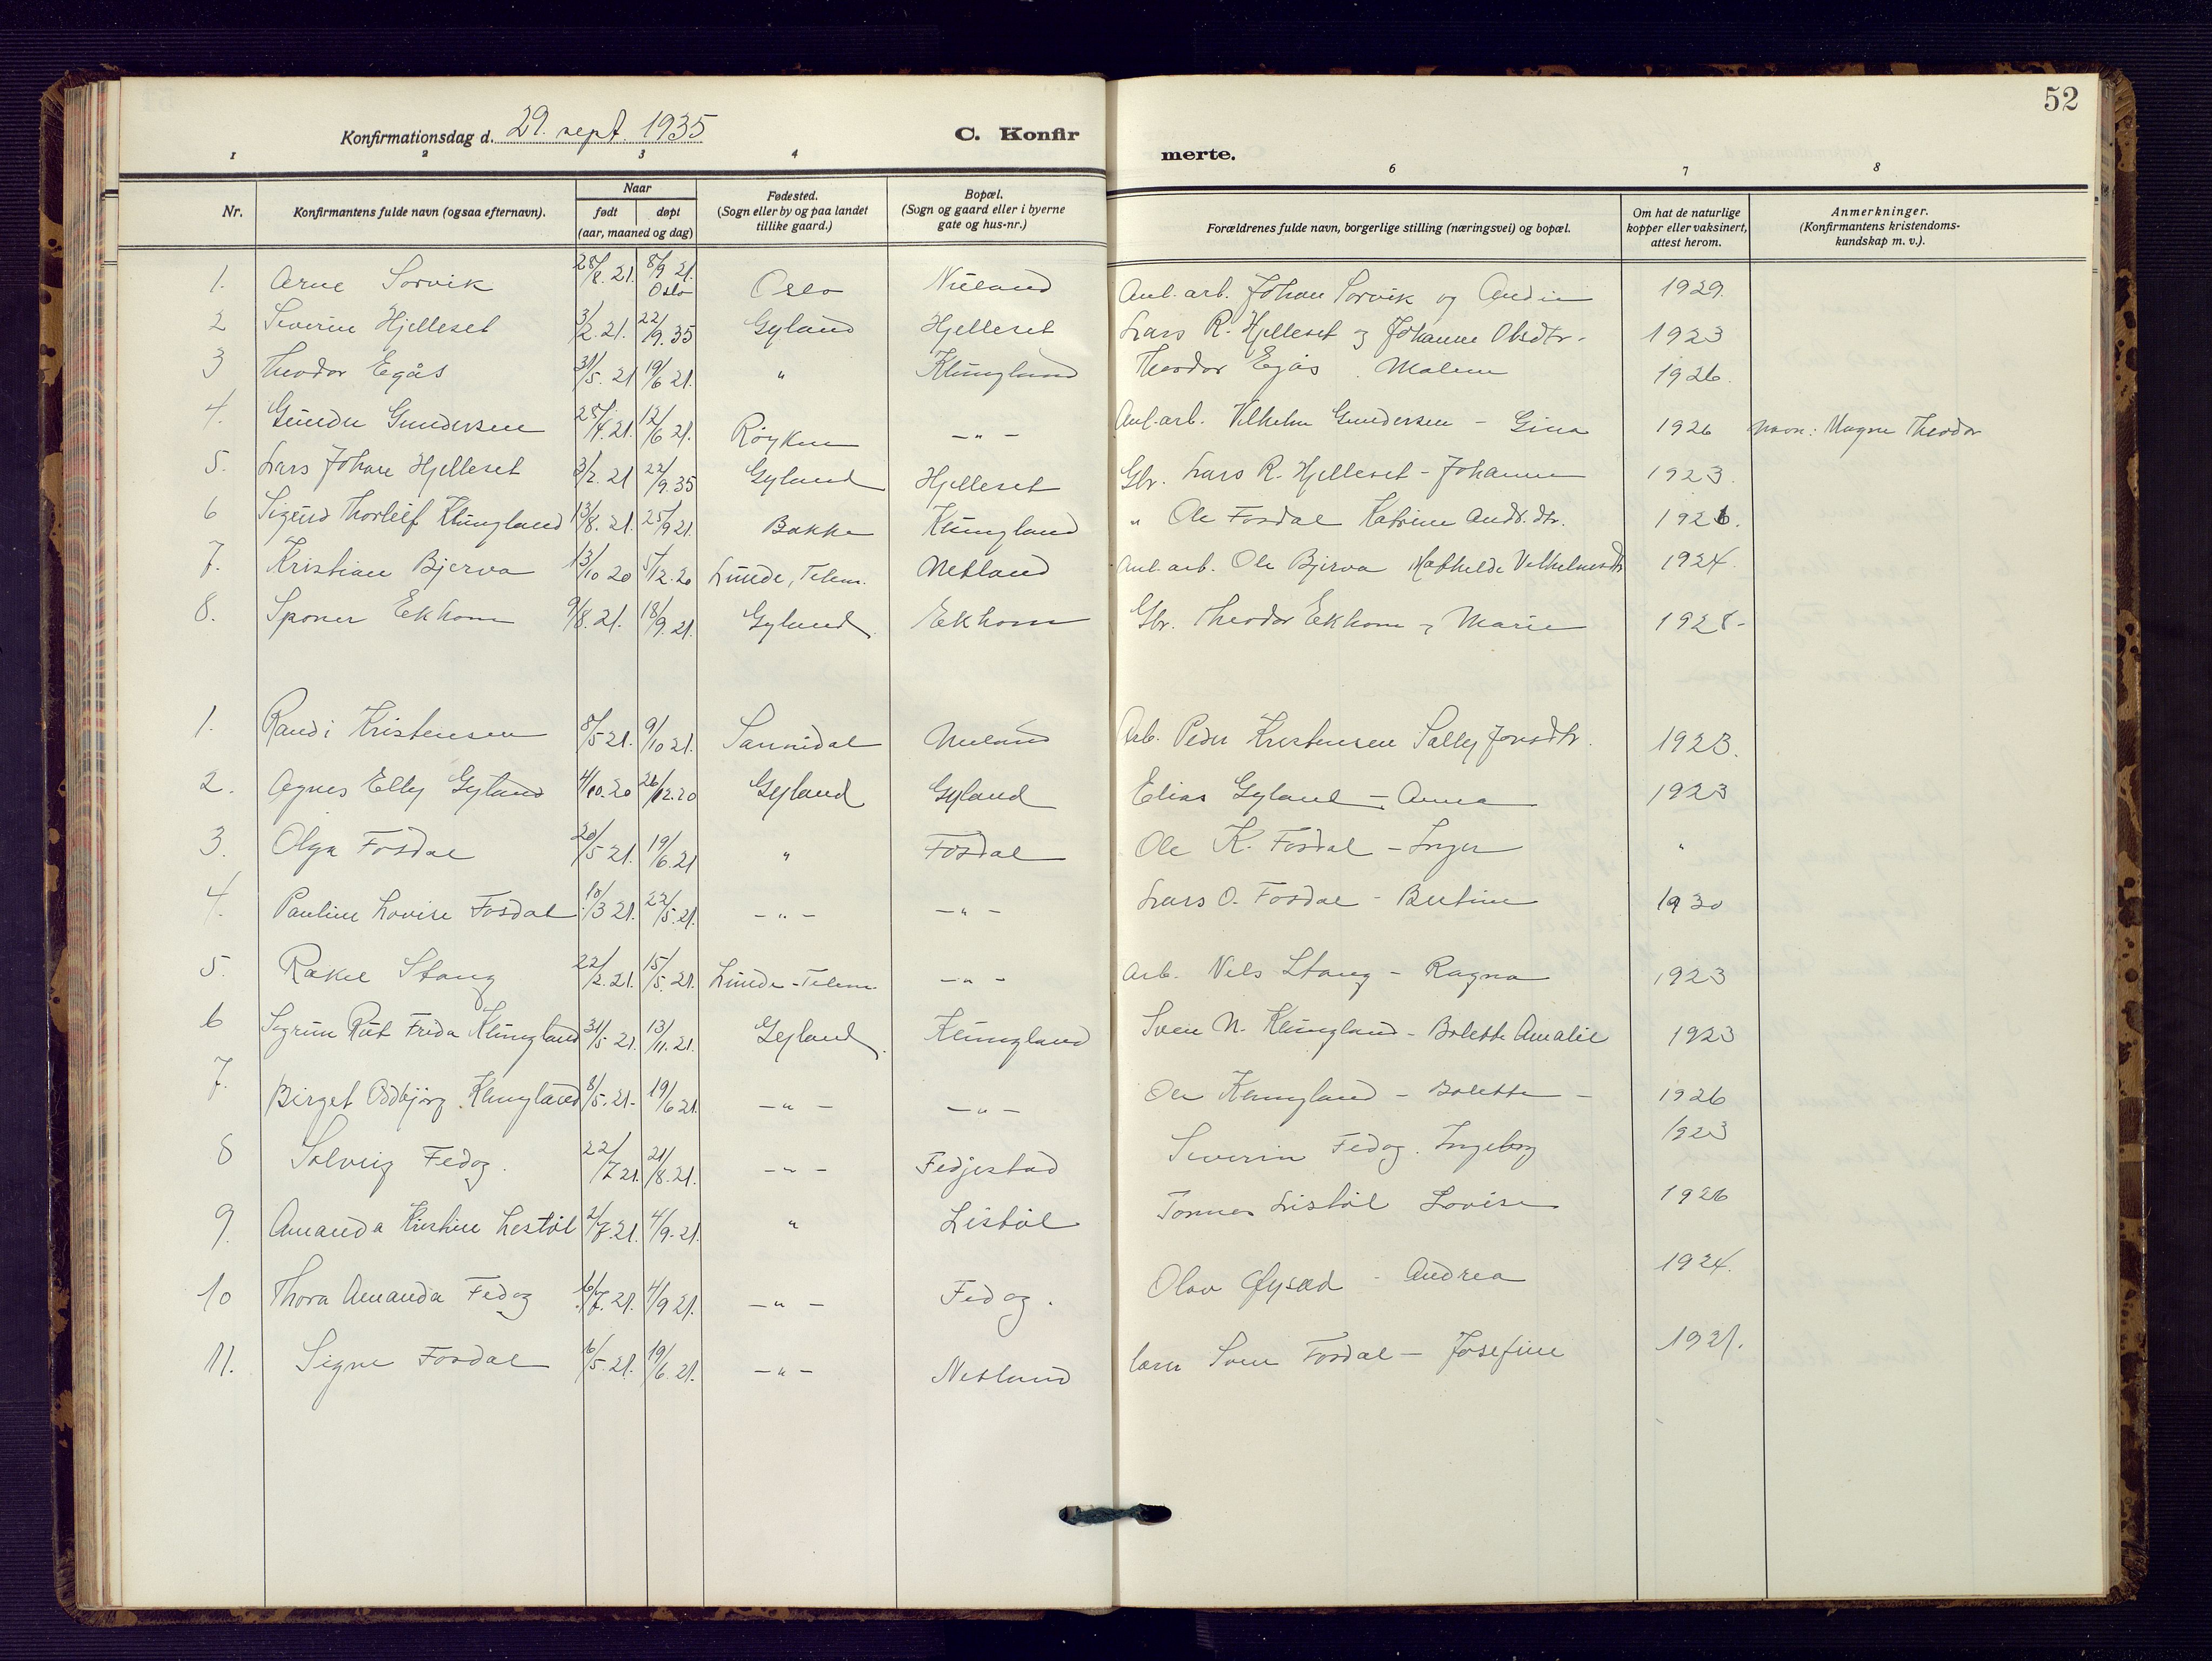 52
Konfirmationsdag d. 29. sept. 1935 C. Konfirmerte.
1 2 3 4 6 7 8
Nr. Konfirmantens fulde navn (ogsaa efternavn). Naar født døpt (aar, maaned og dag) Fødested. (Sogn eller by og paa landet tillike gaard.) Bopæl. (Sogn og gaard eller i byerne gate og hus-nr.) Forældrenes fulde navn, borgerlige stilling (næringsvei) og bopæl. Om hat de naturlige kopper eller vaksinert, attest herom. Anmerkninger. (Konfirmantens kristendoms-kundskap m. v.).
1. Arne Sorvik 28/8. 21. 8/9 21. Oslo Oslo Nuland Anl. arb. Johan Sorvik og 1929.
2 Severin Hjelleset 3/2. 21. 22/9. 35 Gyland Hjelleset Lars R. Hjelleset og Johanne Olsdtr. 1923
3 Theodor Egås 31/5. 21 19/6 21. " Klungland Theodor Egås . Malene 1926.
4. Gunder Gundersen 28/4. 21. 12/6 21. Røyken - " - Anl. arb. Vilhelm Gundersen - Gina 1926 navn: Magne Theodor
5. Lars Johan Hjelleset 3/2. 21 22/9. 35 Gyland Hjelleset Gbr. Lars R. Hjelleset - Johanne 1923.
6 Sigurd Thorleif Klungland 13/8. 21. 25/9 21. Bakke Klungland " Ole Fosdal Katrine Andr. dtr. 1921.
7. Kristian Bjerva 13/10 20 5/12. 20 Lunde, Telem. Netland Anl. arb. Ole Bjerva Mathilde Vilhelmsdtr 1924.
8. Sponer Ekhom 9/8. 21. 18/9. 21. Gyland Ekhom Gbr. Theodor Ekhom og Marie 1928-
1. Randi Kristensen 8/5 21. 9/10 21. Sannidal Nuland Arb. Peder Kristensen Sally Jonsdtr. 1923.
2. Agnes Elly Gyland 4/10. 20 26/12. 20 Gyland Gyland Elias Gyland - Anna 1923
3. Olga Fosdal 20/5 21. 19/6. 21 " Fosdal Ole K. Fosdal - Inger "
4. Pauline Lovise Fosdal 10/3 21. 22/5. 21. - " - - " - Lars O. Fosdal - Bertine 1930
5. Rakel Stang 22/2. 21. 15/5. 21. Lunde - Telem. - " - Arb. Nils Stang - Ragna 1923
6 Sigrun Rut Frida Klungland 31/5 21. 13/11. 21. Gyland Klungland Sven N. Klungland - Bolette Amalie 1923
7. Birget Oddbjørg Klungland 8/5. 21- 19/6 21. - " - - " - Ole Klungland - Bolette - 1926
8 Solveig Fedog. 22/7 21. 21/8. 21. - " - Fedjestad Severin Fedog. Ingeborg 1923
9. Amanda Kristine Lestøl 2/7. 21. 4/9. 21. " Listøl Tønnes Listøl Lovise 1926
10 Thora Amanda Fedog 16/7. 21. 4/9 21. - " - Fedog. Olav - Andrea 1924.
11. Signe Fosdal 6/5. 21. 19/6. 21. - " - Netland Sven Fosdal - Josefine 1921.